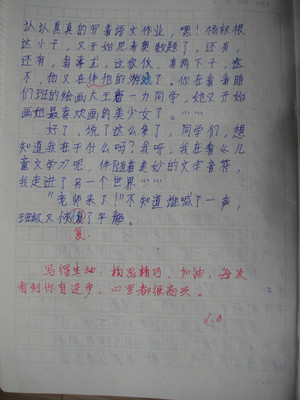 认认真真的写着语文作业，嘿！杨标根
这小子，又开始思考奥数题了，还有，
还有，翁善志，这家伙，有两下子，意
不，他又在使他的游戏了，你在看看咱
们班的绘画大王曹一力同学，她又开始
画她最喜欢画的美少女了。……
好了，说了这么多了，同学们，想
知道我在干什么吗？我呀，我在看么儿
童文学刀呢，伴随着美妙的文字音符，
我走进了另一个世界……
"老师来了！"不知道谁喊了一声，
班级又恢复了平静。
复
写得生动，构思精巧，加油，每次
看到你有进步，心里都很高兴。